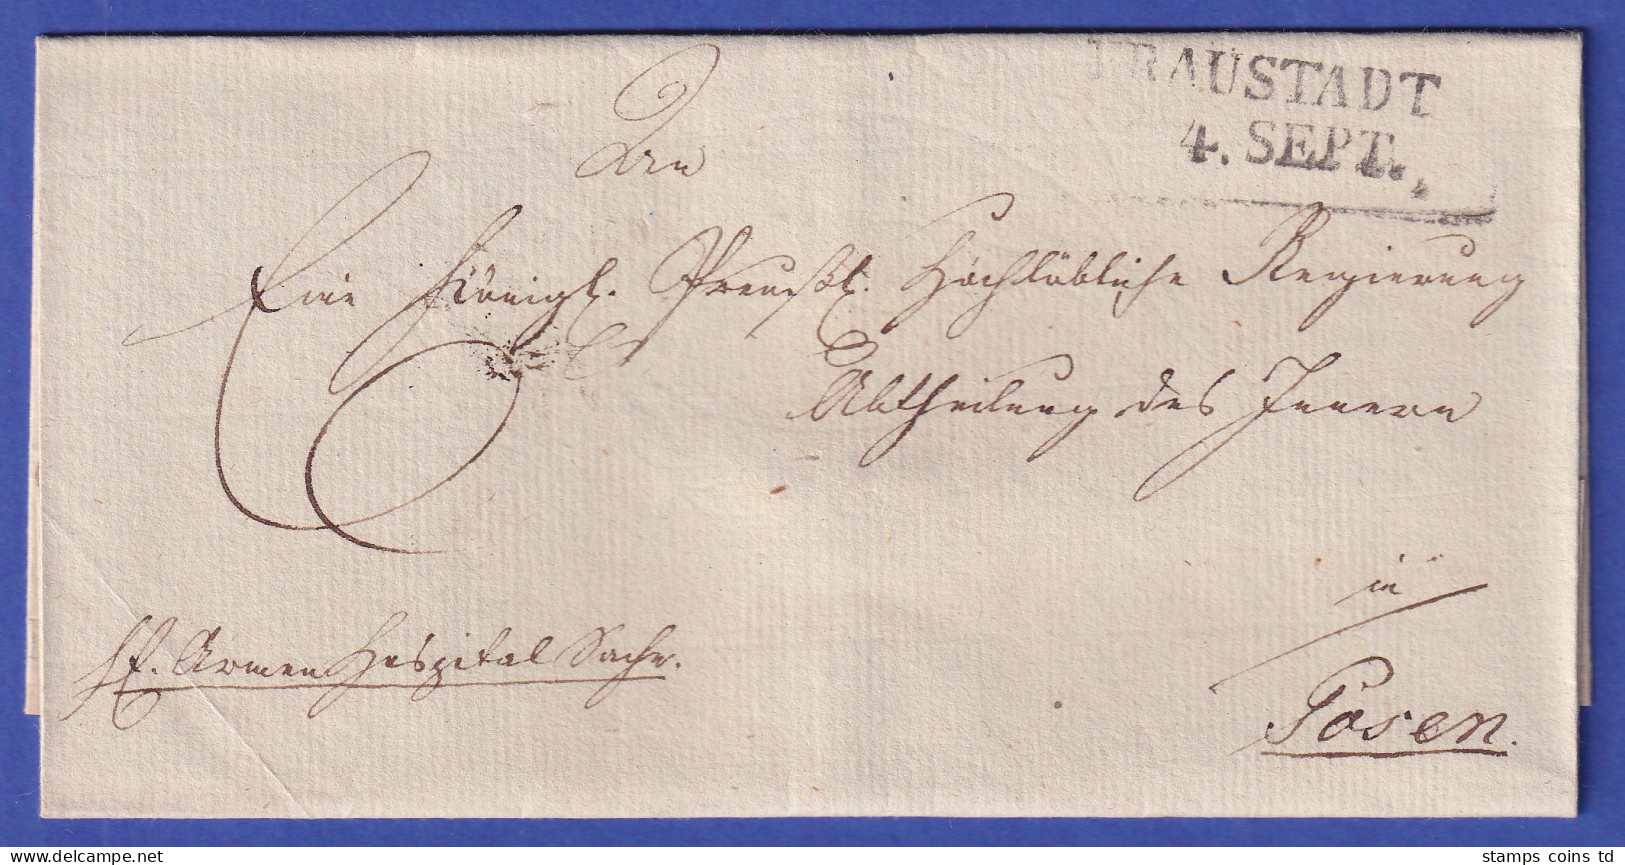 FRAUSTADT
4. SEPT.
An
Eine Königl. Preußl. Hochlöbliche Regierung
Abtheilung des Innern
in
Posen.
Armen Hospital Sache.
stamps coins td